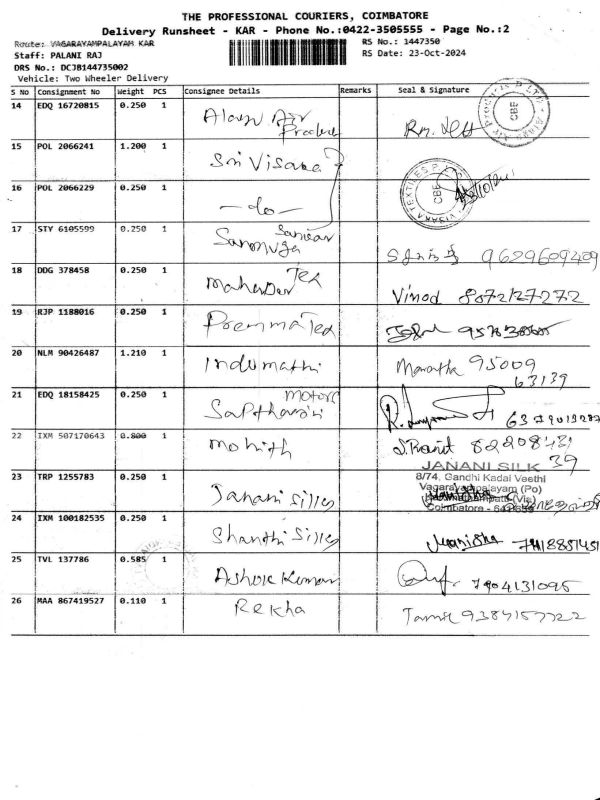 THE PROFESSIONAL COURIERS, COIMBATORE
Delivery Runsheet - KAR - Phone No.:0422-3505555 - Page No.:2
Route: VAGARAYAMPALAYAM KAR
RS No.: 1447350
Staff: PALANI RAJ
RS Date: 23-Oct-2024
DRS No.: DCJB144735002
Vehicle: Two Wheeler Delivery
S No Consignment No Weight PCS Consignee Details Remarks Seal & Signature
14 EDQ 16720815 0.250 1
15 POL 2066241 1.200 1 Sri Visaka
16 POL 2066229 0.250 1 -do-
17 STY 6105599 0.250 1 Sanmuga 9629609409
18 DDG 378458 0.250 1 Mahadev Tex Vinod 8072127272
19 RJP 1188016 0.250 1 Premma Tex
20 NLM 90426487 1.210 1 Indumathi 95009
63139
21 EDQ 18158425 0.250 1 Motors
22 IXM 507170643 0.800 1 Mohith 82208431
39
JANANI SILK
8/74, Gandhi Kadai Veethi
Vagarayampalayam (Po)
23 TRP 1255783 0.250 1 Janani Silks
Coimbatore
24 IXM 100182535 0.250 1 Shanthi Silks Manisha
25 TVL 137786 0.585 1 Ashok Kumar 7904131095
26 MAA 867419527 0.110 1 Rekha Tamil